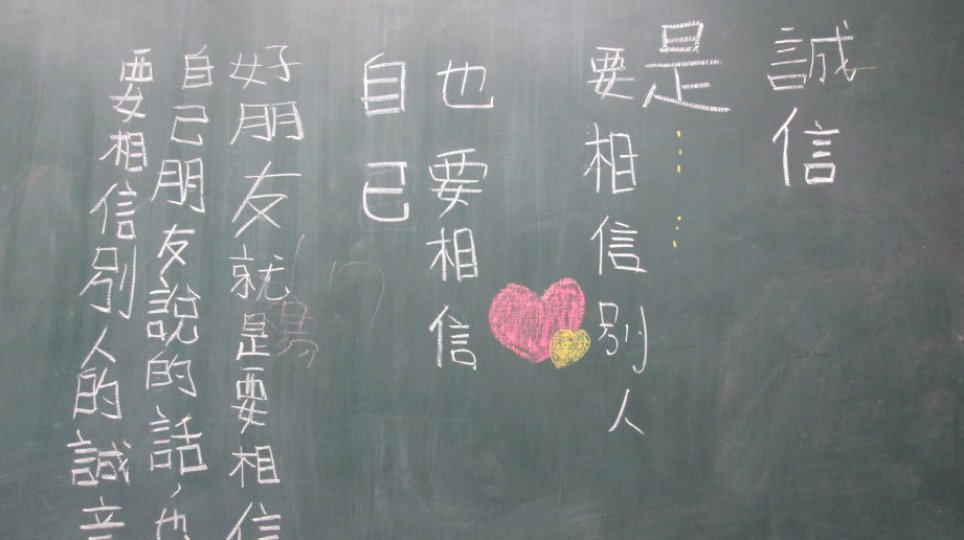 誠信
是……
要相信別人
也要相信
自己
好朋友就是要相信
自己朋友說的話，也
要相信別人的誠意